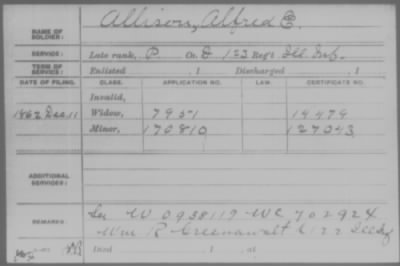 NAME OF SOLDIER: Allison, Alfred E.
SERVICE: Late rank, P. Co. D 123 Reg't Ill. Inf.
TERM OF SERVICE: Enlisted , 1 Discharged , 1
DATE OF FILING. CLASS. APPLICATION NO. LAW. CERTIFICATE NO.
Invalid,
1862 Dec. 11 Widow, 7951 14479
Minor, 170810 127043
ADDITIONAL SERVICES:
REMARKS: See W O 938119 WC 702924
Wm R Greenawalt Ill
Died , 1 , at